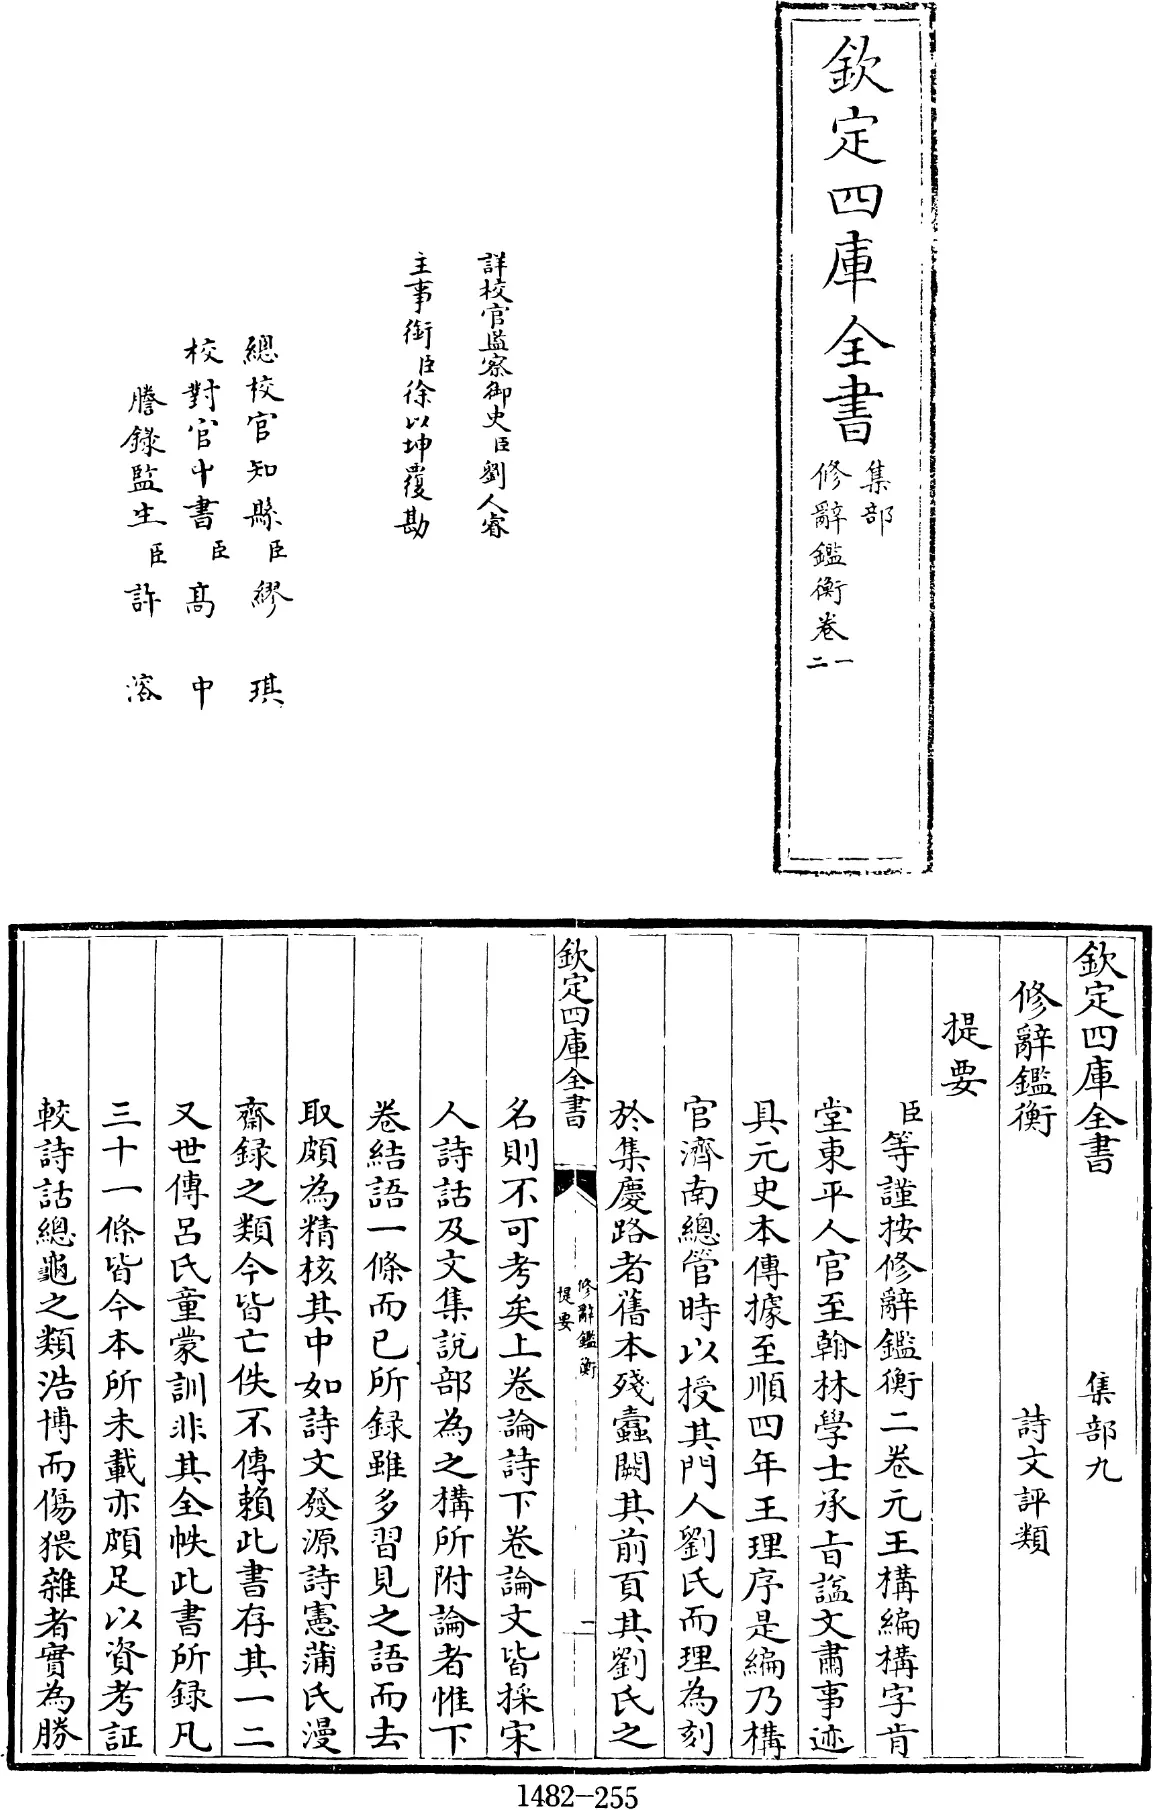 欽定四庫全書
集部
修辭鑑衡卷一
二
詳校官監察御史臣劉人睿
主事銜臣徐以坤覆勘
總校官知縣臣繆琪
校對官中書臣高中
謄錄監生臣許溶
欽定四庫全書 集部九
修辭鑑衡 詩文評類
提要
臣等謹按修辭鑑衡二卷元王構編構字肯
堂東平人官至翰林學士承旨諡文肅事迹
具元史本傳據至順四年王理序是編乃構
官濟南總管時以授其門人劉氏而理為刻
於集慶路者舊本殘蠹闕其前頁其劉氏之
欽定四庫全書
修辭鑑衡
提要
一
名則不可考矣上卷論詩下卷論文皆採宋
人詩話及文集說部為之構所附論者惟下
卷結語一條而已所録雖多習見之語而去
取頗為精核其中如詩文發源詩憲蒲氏漫
齋録之類今皆亡佚不傳賴此書存其一二
又世傳呂氏童蒙訓非其全帙此書所録凡
三十一條皆今本所未載亦頗足以資考証
較詩話總龜之類浩博而傷猥雜者實為勝
1482-255